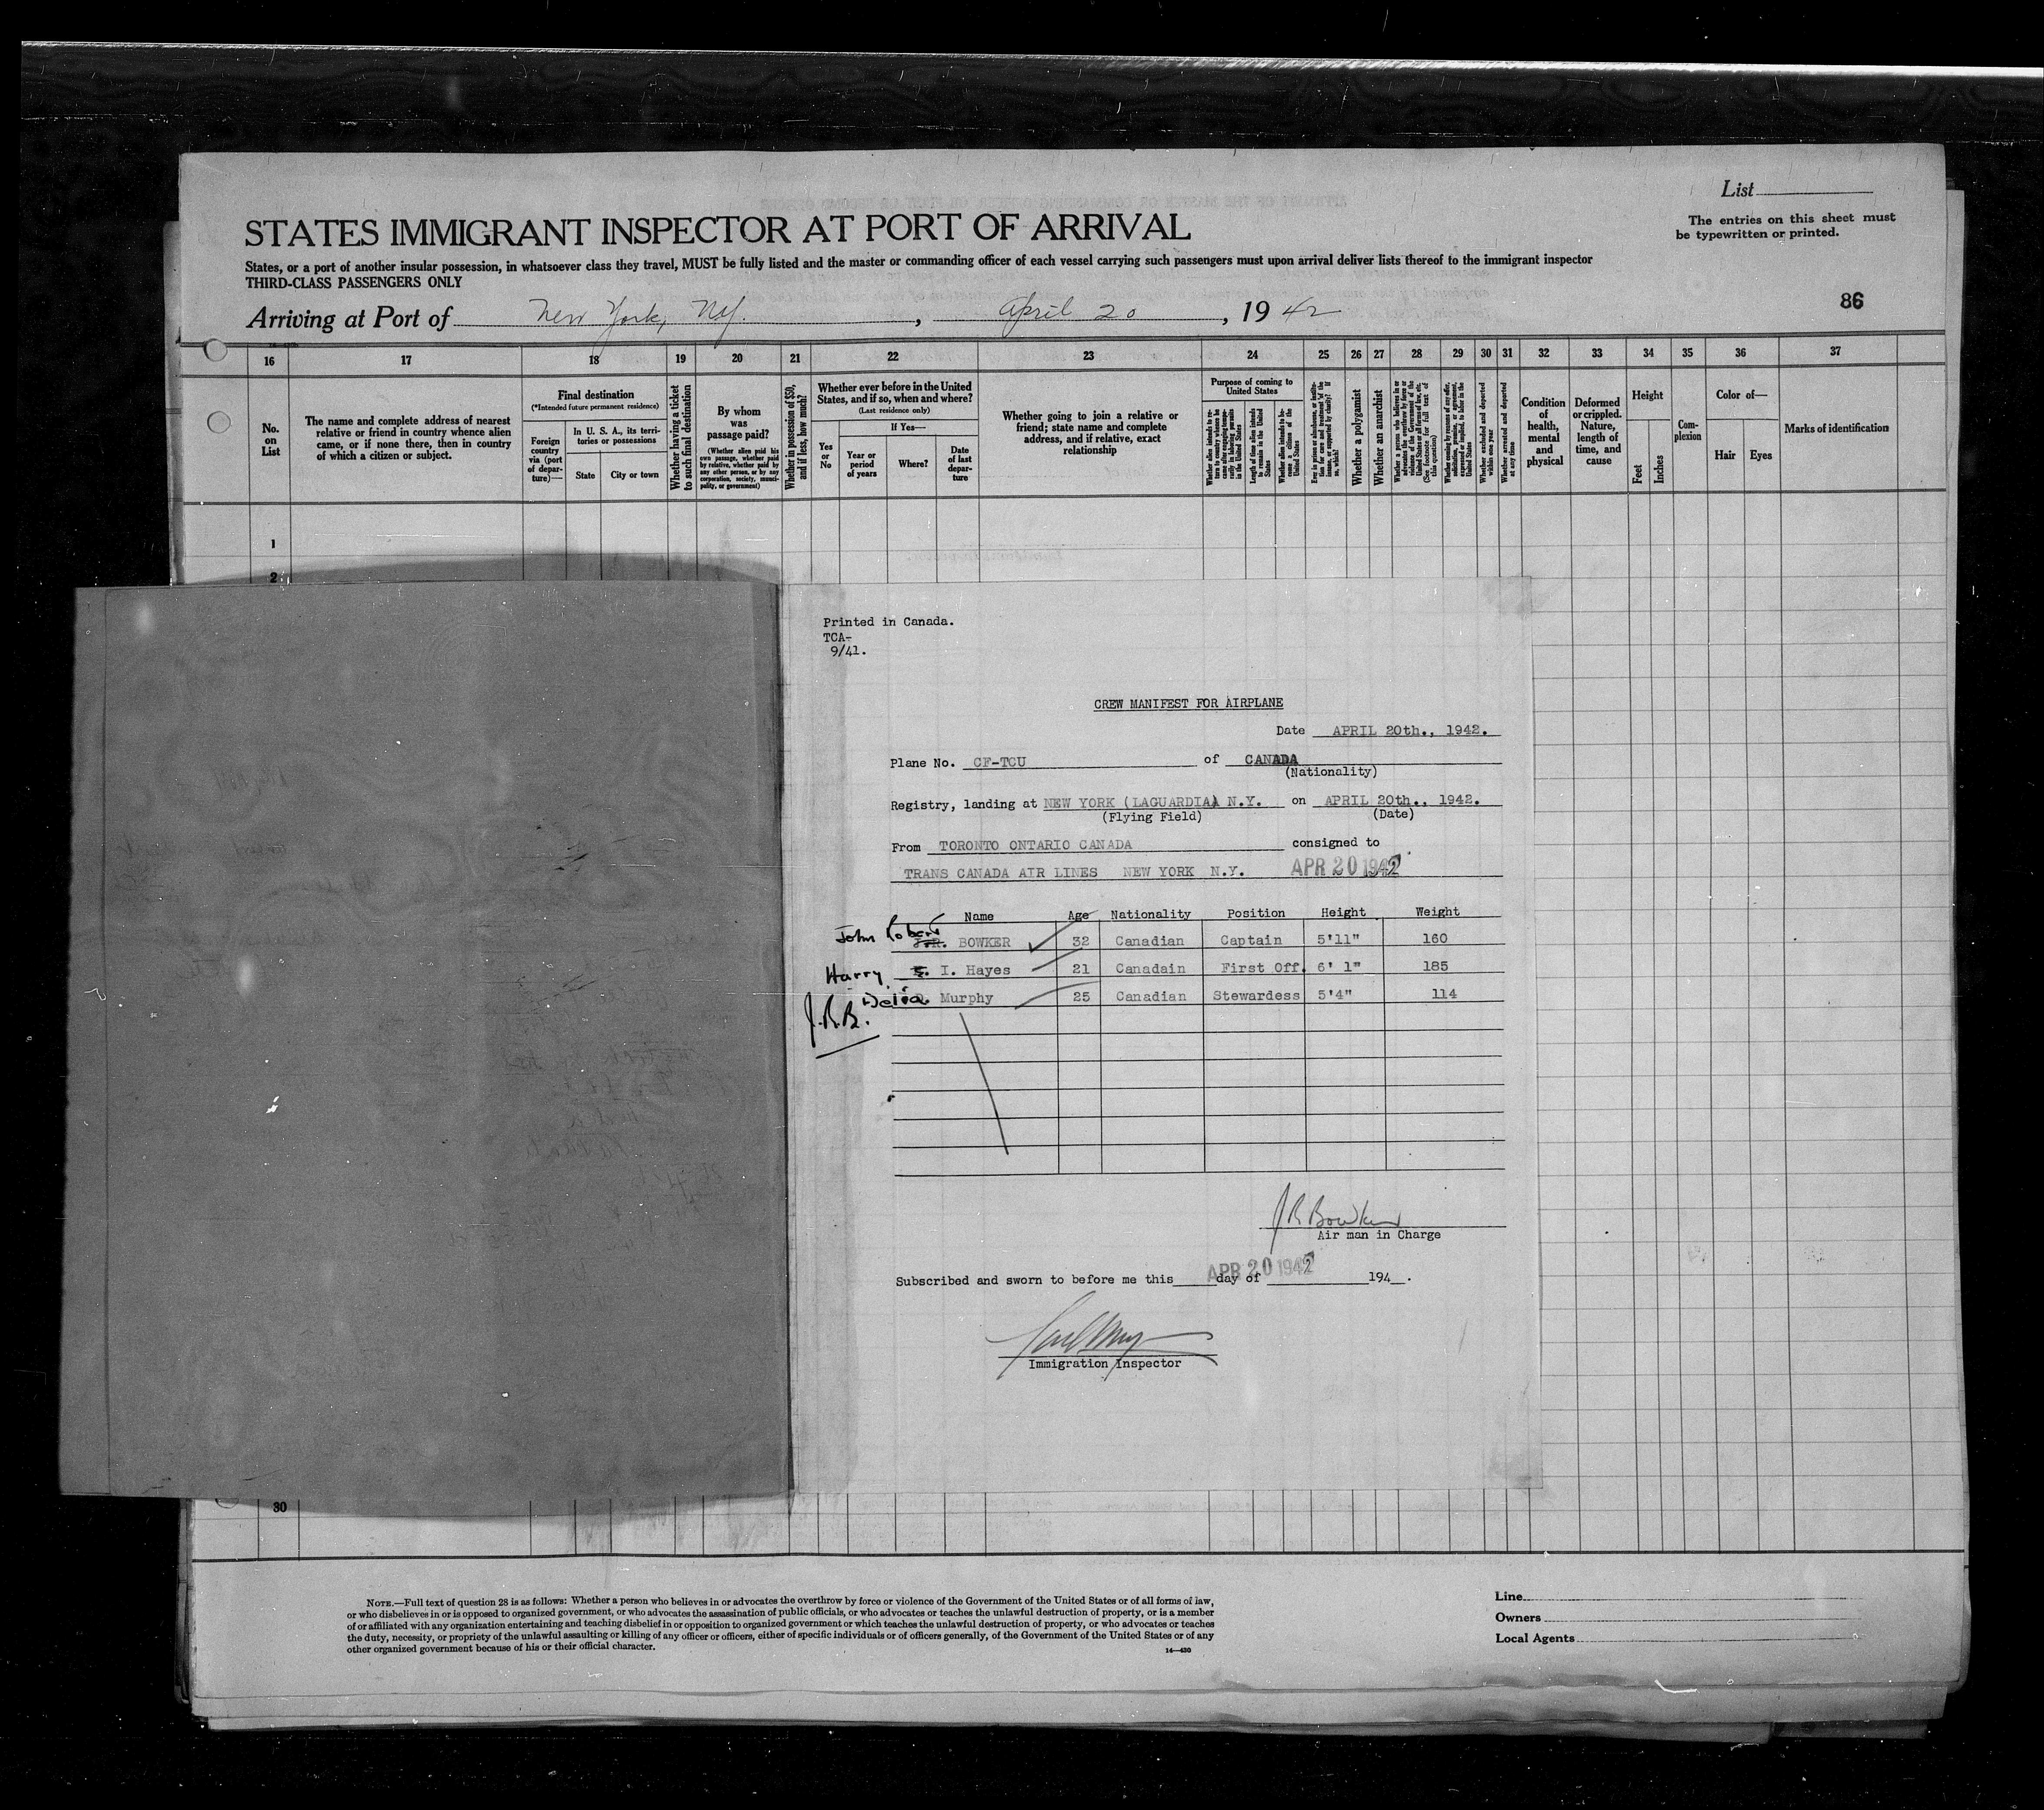 List
The entries on this sheet must
be typewritten or printed.
STATES IMMIGRANT INSPECTOR AT PORT OF ARRIVAL
States, or a port of another insular possession, in whatsoever class they travel, MUST be fully listed and the master or commanding officer of each vessel carrying such passengers must upon arrival deliver lists thereof to the immigrant inspector
THIRD-CLASS PASSENGERS ONLY
86
Arriving at Port of New York, NY. , April 20 , 19 42
16 17 18 19 20 21 22 23 24 25 26 27 28 29 30 31 32 33 34 35 36 37
No.
on
List
The name and complete address of nearest
relative or friend in country whence alien
came, or if none there, then in country
of which a citizen or subject.
Final destination
(*Intended future permanent residence)
Foreign
country
via (port
of depar-
ture)—
In U. S. A., its terri-
tories or possessions
State
City or town
Whether having a ticket
to such final destination
By whom
was
passage paid?
(Whether alien paid his
own passage, whether paid
by relative, whether paid by
any other person, or by any
corporation, society, munici-
pality, or government)
Whether in possession of $50,
and if less, how much?
Whether ever before in the United
States, and if so, when and where?
(Last residence only)
Yes
or
No
If Yes—
Year or
period
of years
Where?
Date
of last
depar-
ture
Whether going to join a relative or
friend; state name and complete
address, and if relative, exact
relationship
Purpose of coming to
United States
Whether alien intends to re-
turn to country whence he
came after engaging tempo-
rarily in laboring pursuits
in the United States
Length of time alien intends
to remain in the United
States
Whether alien intends to be-
come a citizen of the
United States
Whether a polygamist
Whether an anarchist
Whether excluded and deported
within one year
Whether arrested and deported
at any time
Condition
of
health,
mental
and
physical
Deformed
or crippled.
Nature,
length of
time, and
cause
Height
Feet
Inches
Com-
plexion
Color of—
Hair
Eyes
Marks of identification
1
2
Printed in Canada.
TCA-
9/41.
CREW MANIFEST FOR AIRPLANE
Date APRIL 20th., 1942.
Plane No. CF-TCU of CANADA
(Nationality)
Registry, landing at NEW YORK (LAGUARDIA) N.Y. on APRIL 20th., 1942.
(Flying Field) (Date)
From TORONTO ONTARIO CANADA consigned to
TRANS CANADA AIR LINES NEW YORK N.Y. APR 20 1942
Name Age Nationality Position Height Weight
John Robert J.R. BOWKER 32 Canadian Captain 5'11" 160
Harry I. Hayes 21 Canadain First Off. 6' 1" 185
Delia Murphy 25 Canadian Stewardess 5'4" 114
J.R.B.
J R Bowker
Air man in Charge
Subscribed and sworn to before me this day of APR 20 1942 194 .
Immigration Inspector
30
NOTE.—Full text of question 28 is as follows: Whether a person who believes in or advocates the overthrow by force or violence of the Government of the United States or of all forms of law,
or who disbelieves in or is opposed to organized government, or who advocates the assassination of public officials, or who advocates or teaches the unlawful destruction of property, or is a member
of or affiliated with any organization entertaining and teaching disbelief in or opposition to organized government or which teaches the unlawful destruction of property, or who advocates or teaches
the duty, necessity, or propriety of the unlawful assaulting or killing of any officer or officers, either of specific individuals or of officers generally, of the Government of the United States or of any
other organized government because of his or their official character.
14—430
Line
Owners
Local Agents